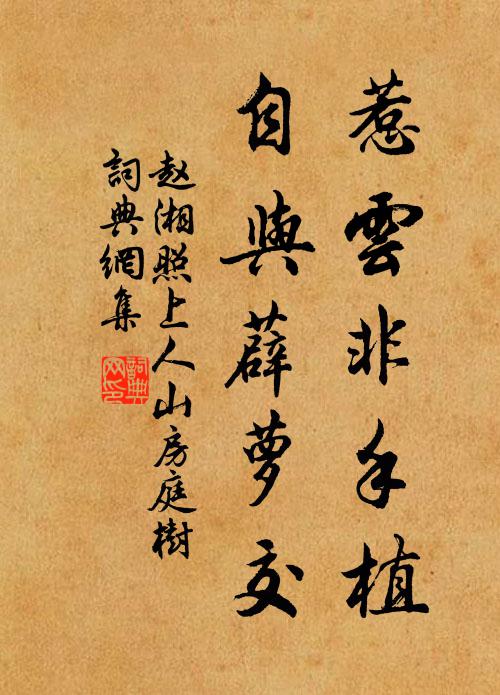 惹雲非手植
自與薜蘿交
赵湘照上人山房庭樹
詞典網集
詞典网印